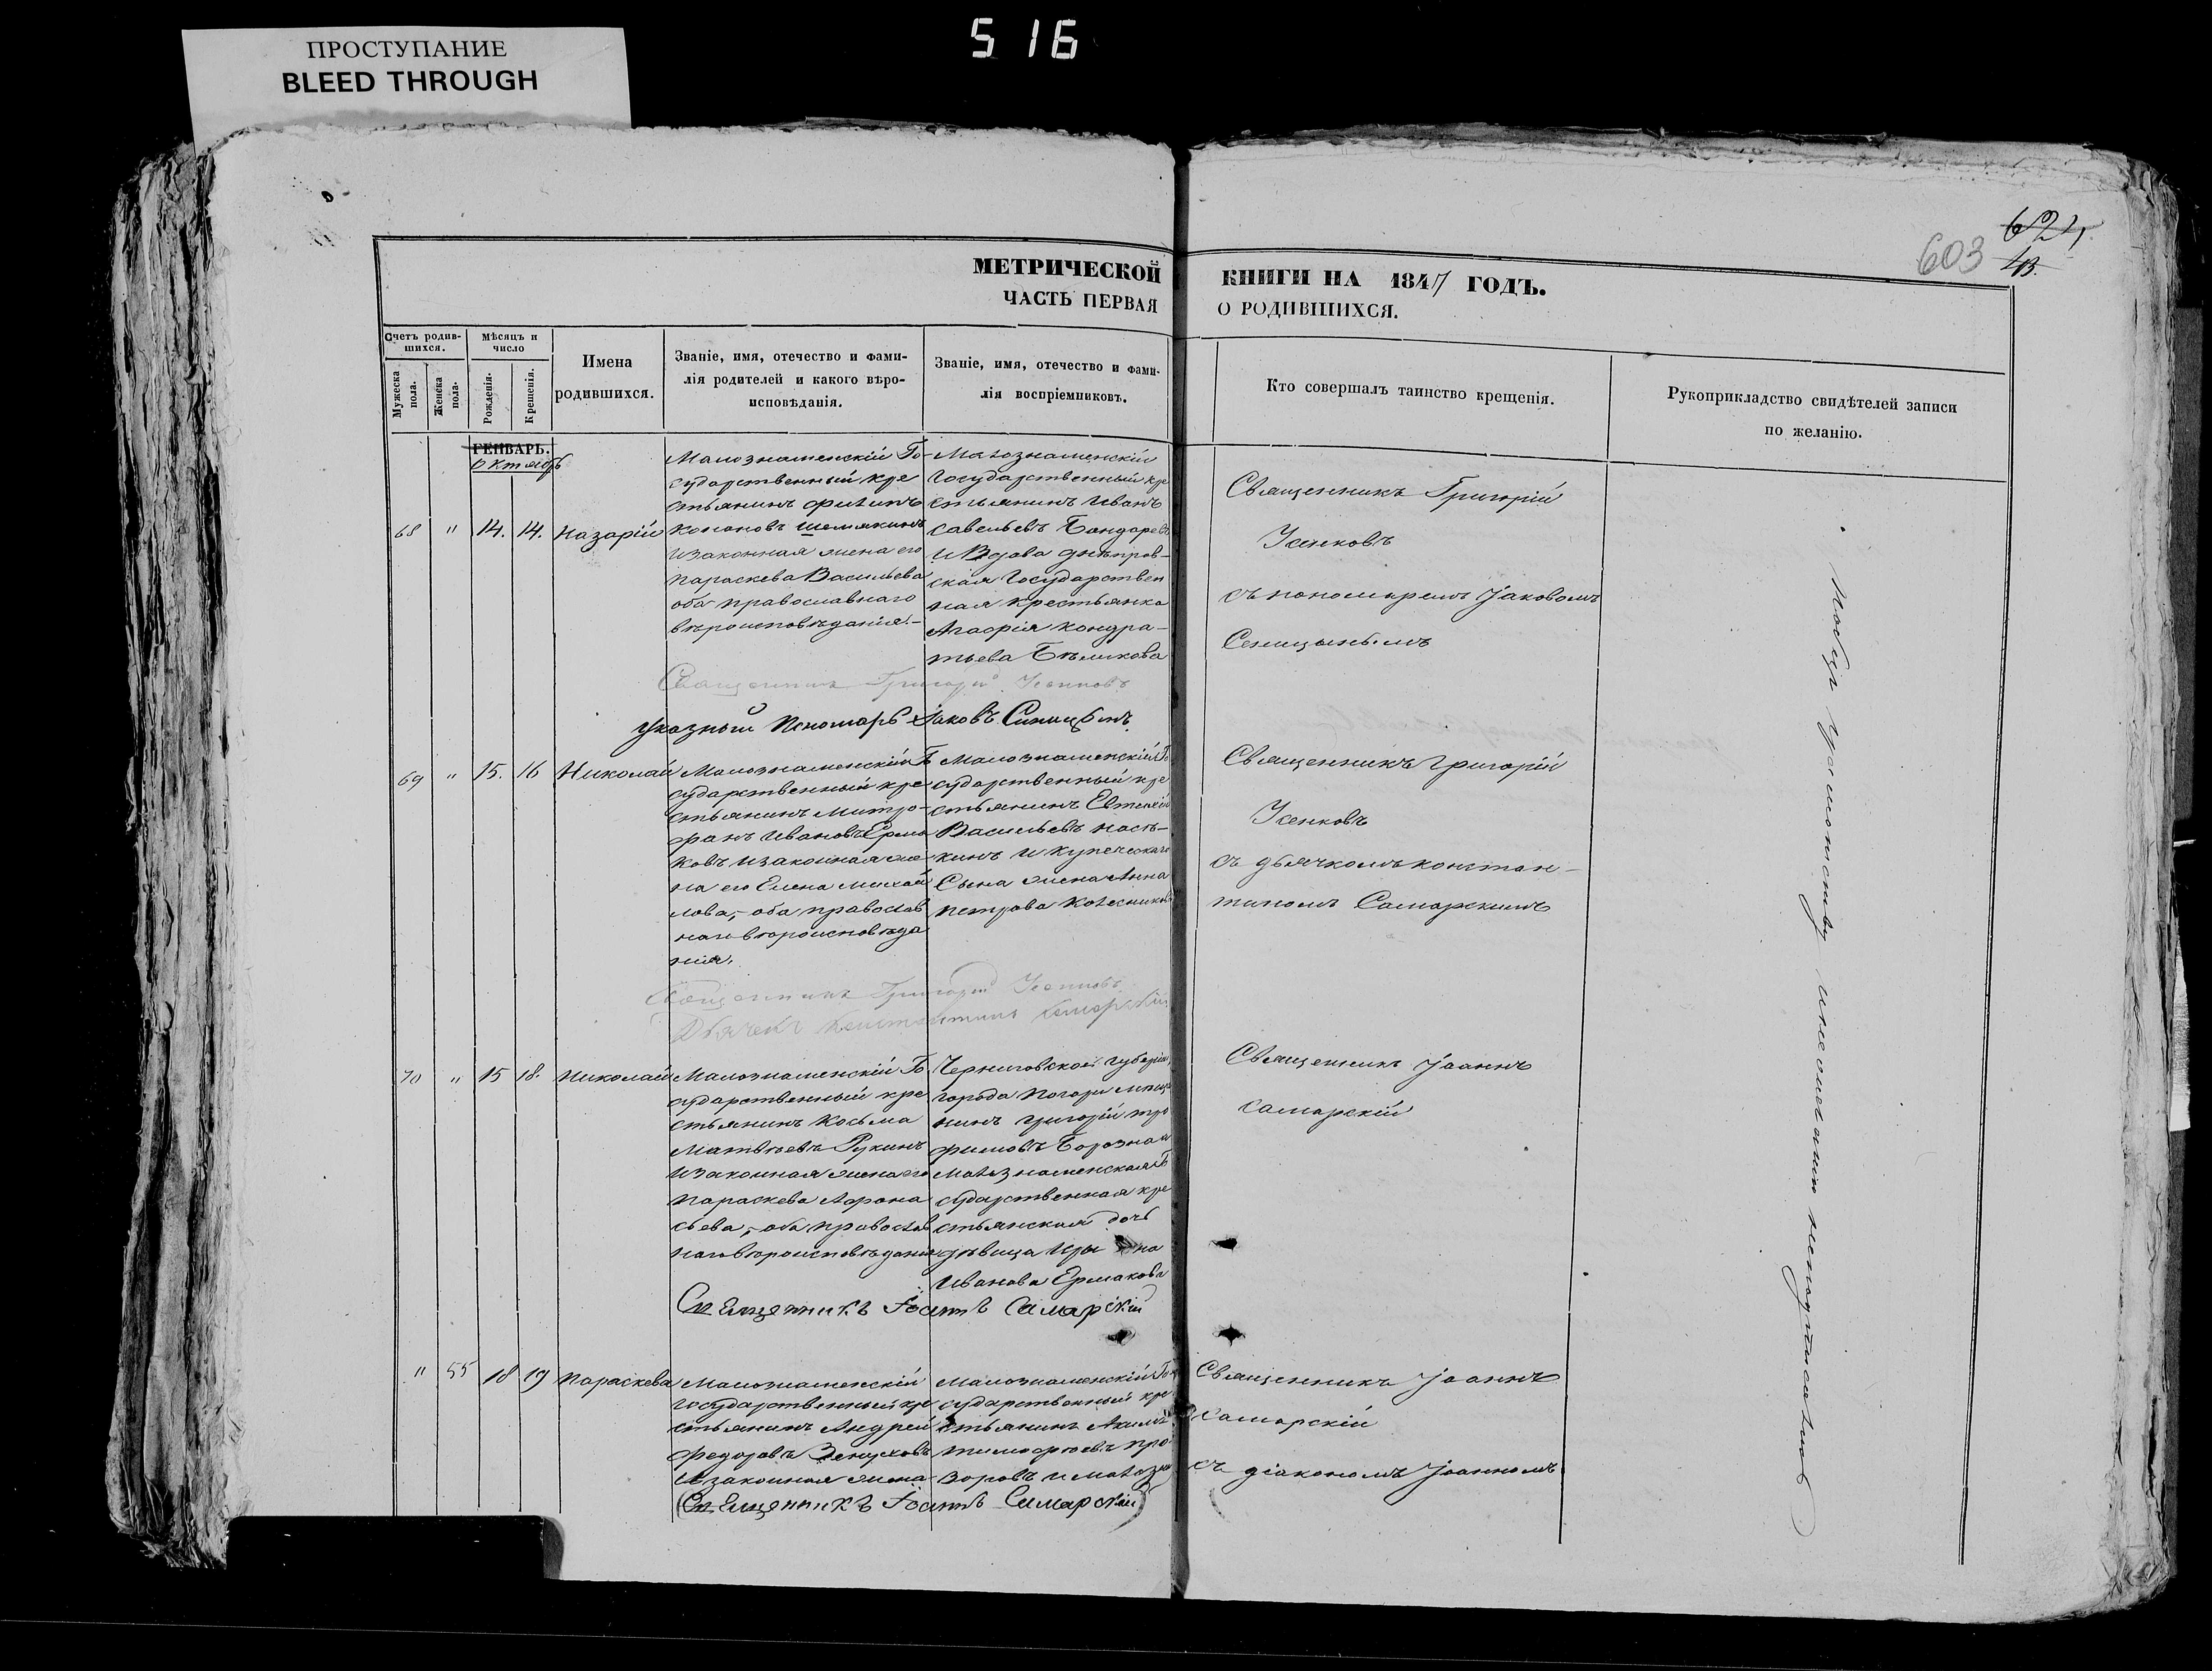 ПРОСТУПАНИЕ
BLEED THROUGH
516
603
624
МЕТРИЧЕСКОЙ КНИГИ НА 1847 ГОДЪ.
ЧАСТЬ ПЕРВАЯ О РОДИВШИХСЯ.
Счетъ родив-
шихся.
Мужеска
пола.
Женска
пола.
Мѣсяцъ и
число
Рожденія.
Крещенія.
Имена
родившихся.
Званіе, имя, отечество и фами-
лія родителей и какого вѣро-
исповѣданія.
Званіе, имя, отечество и фами-
лія воспріемниковъ.
Кто совершалъ таинство крещенія.
Рукоприкладство свидѣтелей записи
по желанію.
ГЕНВАРЬ.
Октябрь
68 " 14. 14. Назарій
Малознаменскій Го-
сударственный кре
стьянинъ Филипъ
Кононовъ Шемякинъ
и законная жена его
Параскева Васильева
оба православнаго
вѣроисповѣданія.-
Малознаменскій
Государственный кре
стьянинъ Иванъ
Савельевъ Бондарев
и Вдова днѣпров-
ская Государствен
ная крестьянка
Агафія Кондра-
тьева Бѣликова
Священникъ Григорій
Усенковъ
съ пономаремъ Іаковомъ
Синицынымъ
Священникъ Григорій Усенковъ
Указный Пономарь Іаковъ Синицынъ
69 " 15. 16 Николай
Малознаменскій Го
сударственный кре
стьянинъ Митро-
фанъ Ивановъ Ерма
ковъ и законная же
на его Елена Михай
лова,- оба православ
наго вѣроисповѣда
нія.
Малознаменскій Го
сударственный кре
стьянинъ Евтихій
Васильевъ Пастъ-
кинъ и купеческаго
Сына жена Анна
Петрова Колесников
Священникъ Григорій
Усенковъ
съ дьячкомъ констан-
тиномъ Самарскимъ
Священникъ Григорій Усенковъ
Дьячекъ Константинъ Самарскій
70 " 15 18. Николай
Малознаменскій Го
сударственный кре
стьянинъ Косьма
Матвѣевъ Рукинъ
и законная жена его
Параскева Афана
сьева,- оба православ
наго вѣроисповѣданія
Черниговской губерніи
города Погари мѣща
нинъ Григорій Тро
фимовъ Борозна и
малознаменская Го
сударственная кре
стьянская дочь
дѣвица Ири на
Иванова Ермакова
Священникъ Іоаннъ
Самарскій
Священникъ Іоаннъ Самарскій
" 55 18 19 Параскева
Малознаменскій
государственный кре
стьянинъ Андрей
Федоровъ Зенуховъ
и законная жена
Малознаменскій Го
сударственный кре
стьянинъ Акимъ
Тимофѣевъ Про
воровъ и малозна
Священникъ Іоаннъ
Самарскій
съ діакономъ Іоанномъ
Священникъ Іоаннъ Самарскій